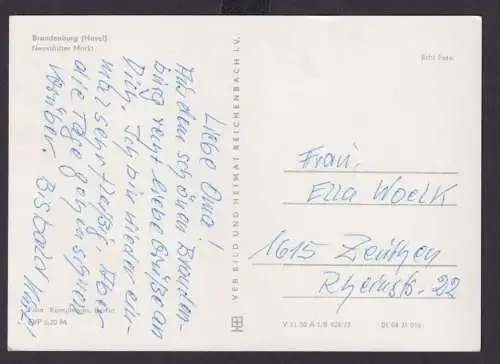 Brandenburg (Havel)
Neustädter Markt
Liebe Oma!
Aus dem schönen Branden-
burg recht liebe Grüße an
Dich. Ich bin wieder ein-
mal sehr fleißig. Aber
die Tage gehen schnell
vorüber. Bis bald
Foto: Kemptmann, Berlin
EVP 0,20 M
VEB BILD UND HEIMAT REICHENBACH i. V.
Echt Foto
Frau
Ella Woelk
1615 Zeuthen
Rheinstr. 22
V 11 50 A 1/B 928/72
01 04 31 016